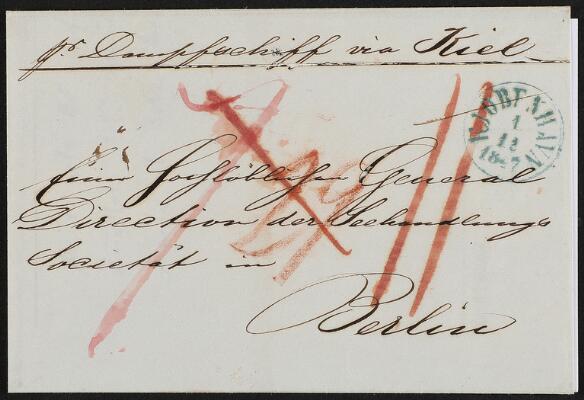 pr Dampfschiff via Kiel
KJØBENHAVN
1
12
Einer Hochlöblichen General
Direction der Seehandlungs
Societät in
Berlin